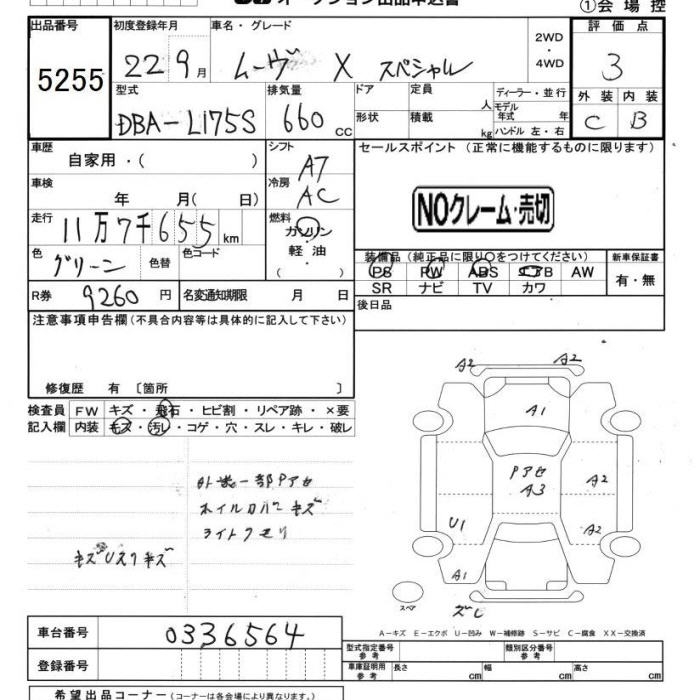 オークション出品申込書
①会場控
出品番号
5255
初度登録年月
22 9月
車名・グレード
ムーヴ X スペシャル
2WD
・
4WD
評価点
3
外装 内装
C B
型式
DBA-L175S
排気量
660 CC
ドア
形状
定員 人
積載 kg
ディーラー・並行
モデル
年式 年
ハンドル 左・右
車歴
自家用・( )
シフト
A7
セールスポイント (正常に機能するものに限ります)
NOクレーム・売切
車検
年 月( 日)
冷房
AC
走行
11万7千655km
燃料
ガソリン
・
軽油
( )
色
グリーン
色替
色コード
装備品(純正品に限り○をつけてください)
PS PW ABS エアB AW
SR ナビ TV カワ
新車保証書
有・無
R券 9260円
名変通知期限 月 日
後日品
注意事項申告欄(不具合内容等は具体的に記入して下さい)
修復歴 有 〔箇所 〕
検査員
記入欄
FW キズ・飛石・ヒビ割・リペア跡・×要
内装 キズ・汚レ・コゲ・穴・スレ・キレ・破レ
外装一部Pアセ
ホイルカバーキズ
ライトクモリ
キズUスリキズ
A2 A2
A1
Pアセ
A3
A2
U1
A2
A1
スペア
ズレ
A-キズ E-エクボ U-凹み W-補修跡 S-サビ C-腐食 XX-交換済
車台番号
0336564
登録番号
型式指定番号
参考
類別区分番号
参考
車庫証明用
参考
長さ cm 幅 cm 高さ cm
希望出品コーナー(コーナーは各会場により異なります。)